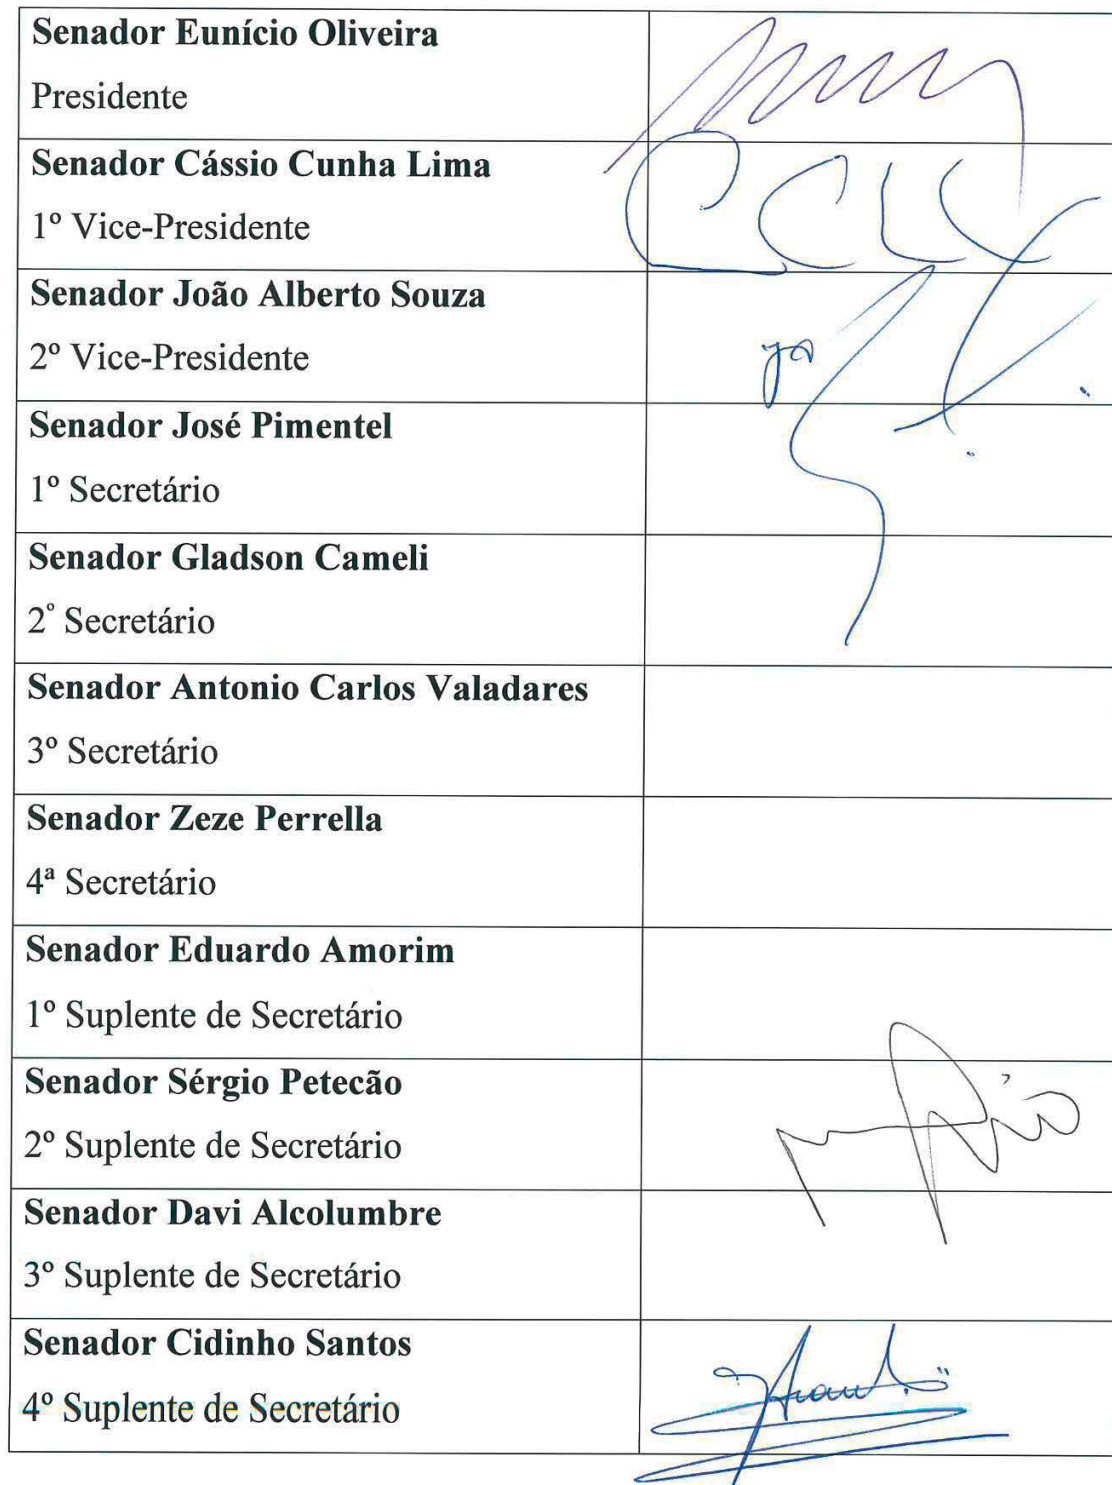 Senador Eunício Oliveira
Presidente
Senador Cássio Cunha Lima
1º Vice-Presidente
Senador João Alberto Souza
2º Vice-Presidente
Senador José Pimentel
1º Secretário
Senador Gladson Cameli
2º Secretário
Senador Antonio Carlos Valadares
3º Secretário
Senador Zeze Perrella
4ª Secretário
Senador Eduardo Amorim
1º Suplente de Secretário
Senador Sérgio Petecão
2º Suplente de Secretário
Senador Davi Alcolumbre
3º Suplente de Secretário
Senador Cidinho Santos
4º Suplente de Secretário